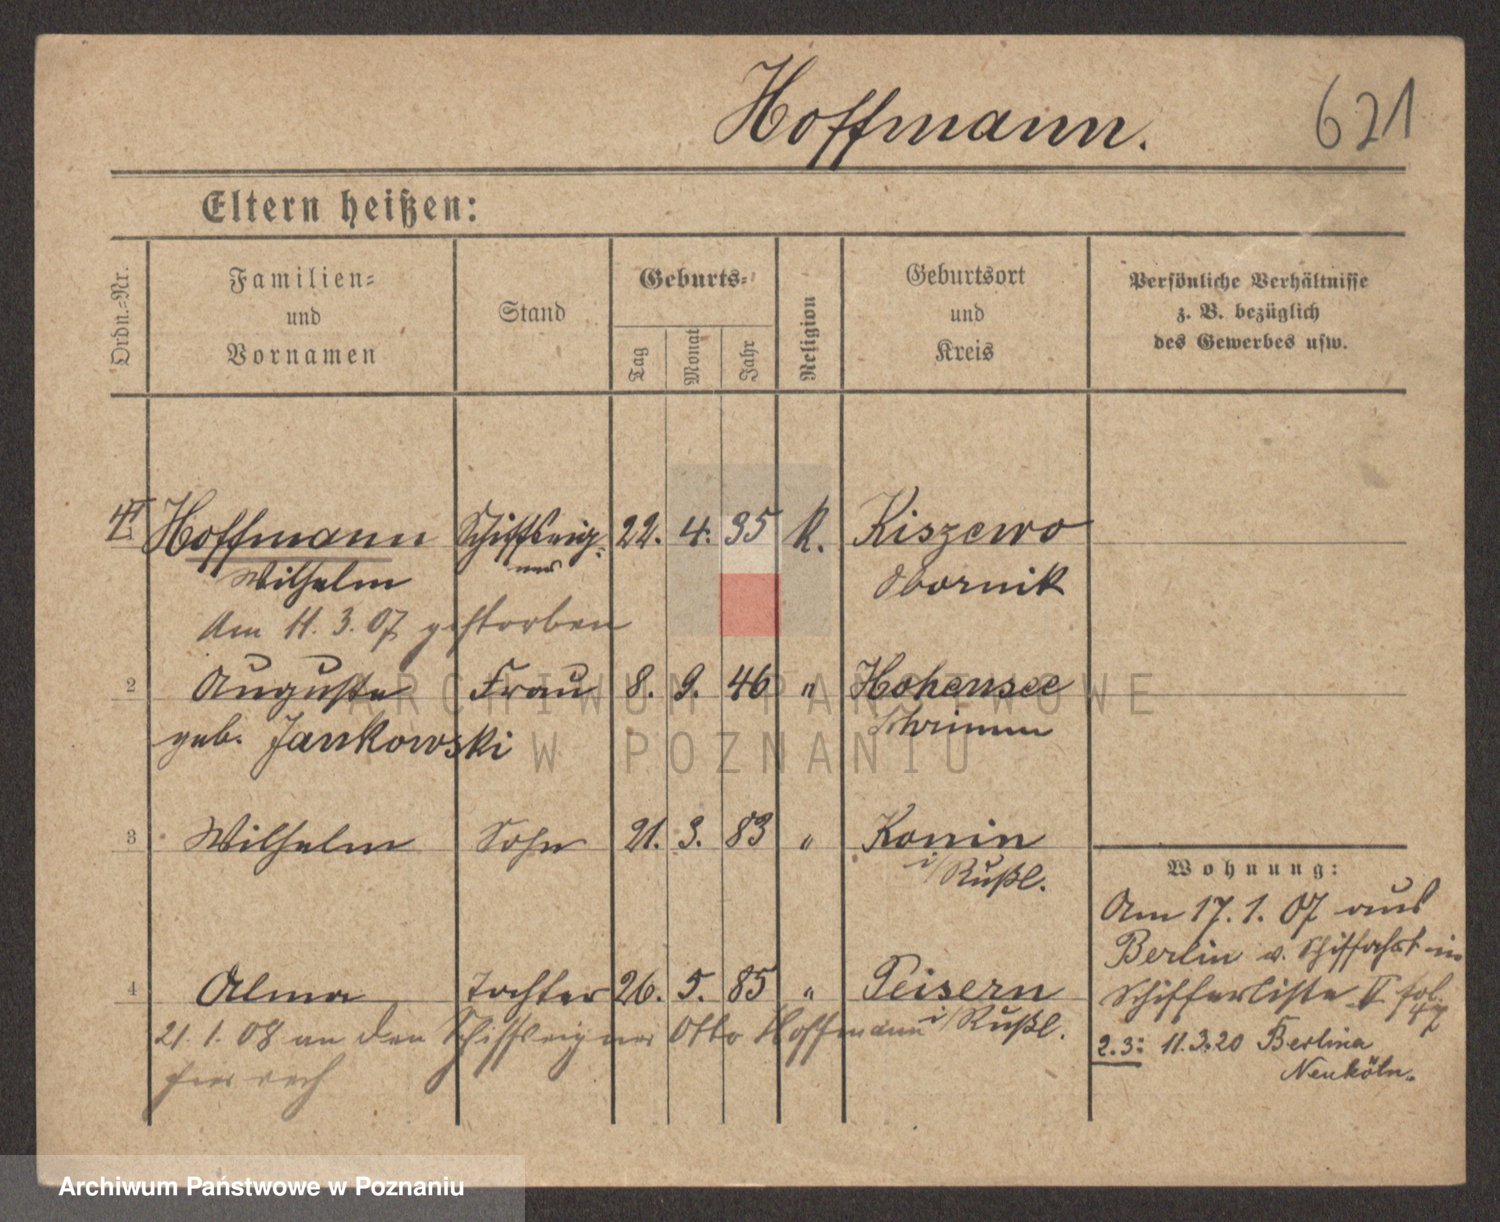 Hoffmann.
621
Eltern heißen:
Ordn.-Nr.
Familien-
und
Vornamen
Stand
Geburts-
Tag
Monat
Jahr
Religion
Geburtsort
und
Kreis
Persönliche Verhältnisse
z. B. bezüglich
des Gewerbes usw.
Hoffmann Schiffseig- 22. 4. 35 K. Kiszewo
Wilhelm ner Obornik
Am 11. 3. 07 gestorben
2 Auguste Frau 8. 9. 46 " Hohensee
geb. Jankowski Schrimm
3 Wilhelm Sohn 21. 3. 83 " Konin
i/Rußl.
4 Alma Tochter 26. 5. 85 " Peisern
i/Rußl.
21. 1. 08 an den Schiffseigner Otto Hoffmann
Wohnung:
Am 17. 1. 07 aus
Berlin v. Schiffahrt in
Schifferliste II fol.
2.3: 11.3.20 Berlin
Neuköln.
ARCHIWUM PAŃSTWOWE
W POZNANIU
Archiwum Państwowe w Poznaniu